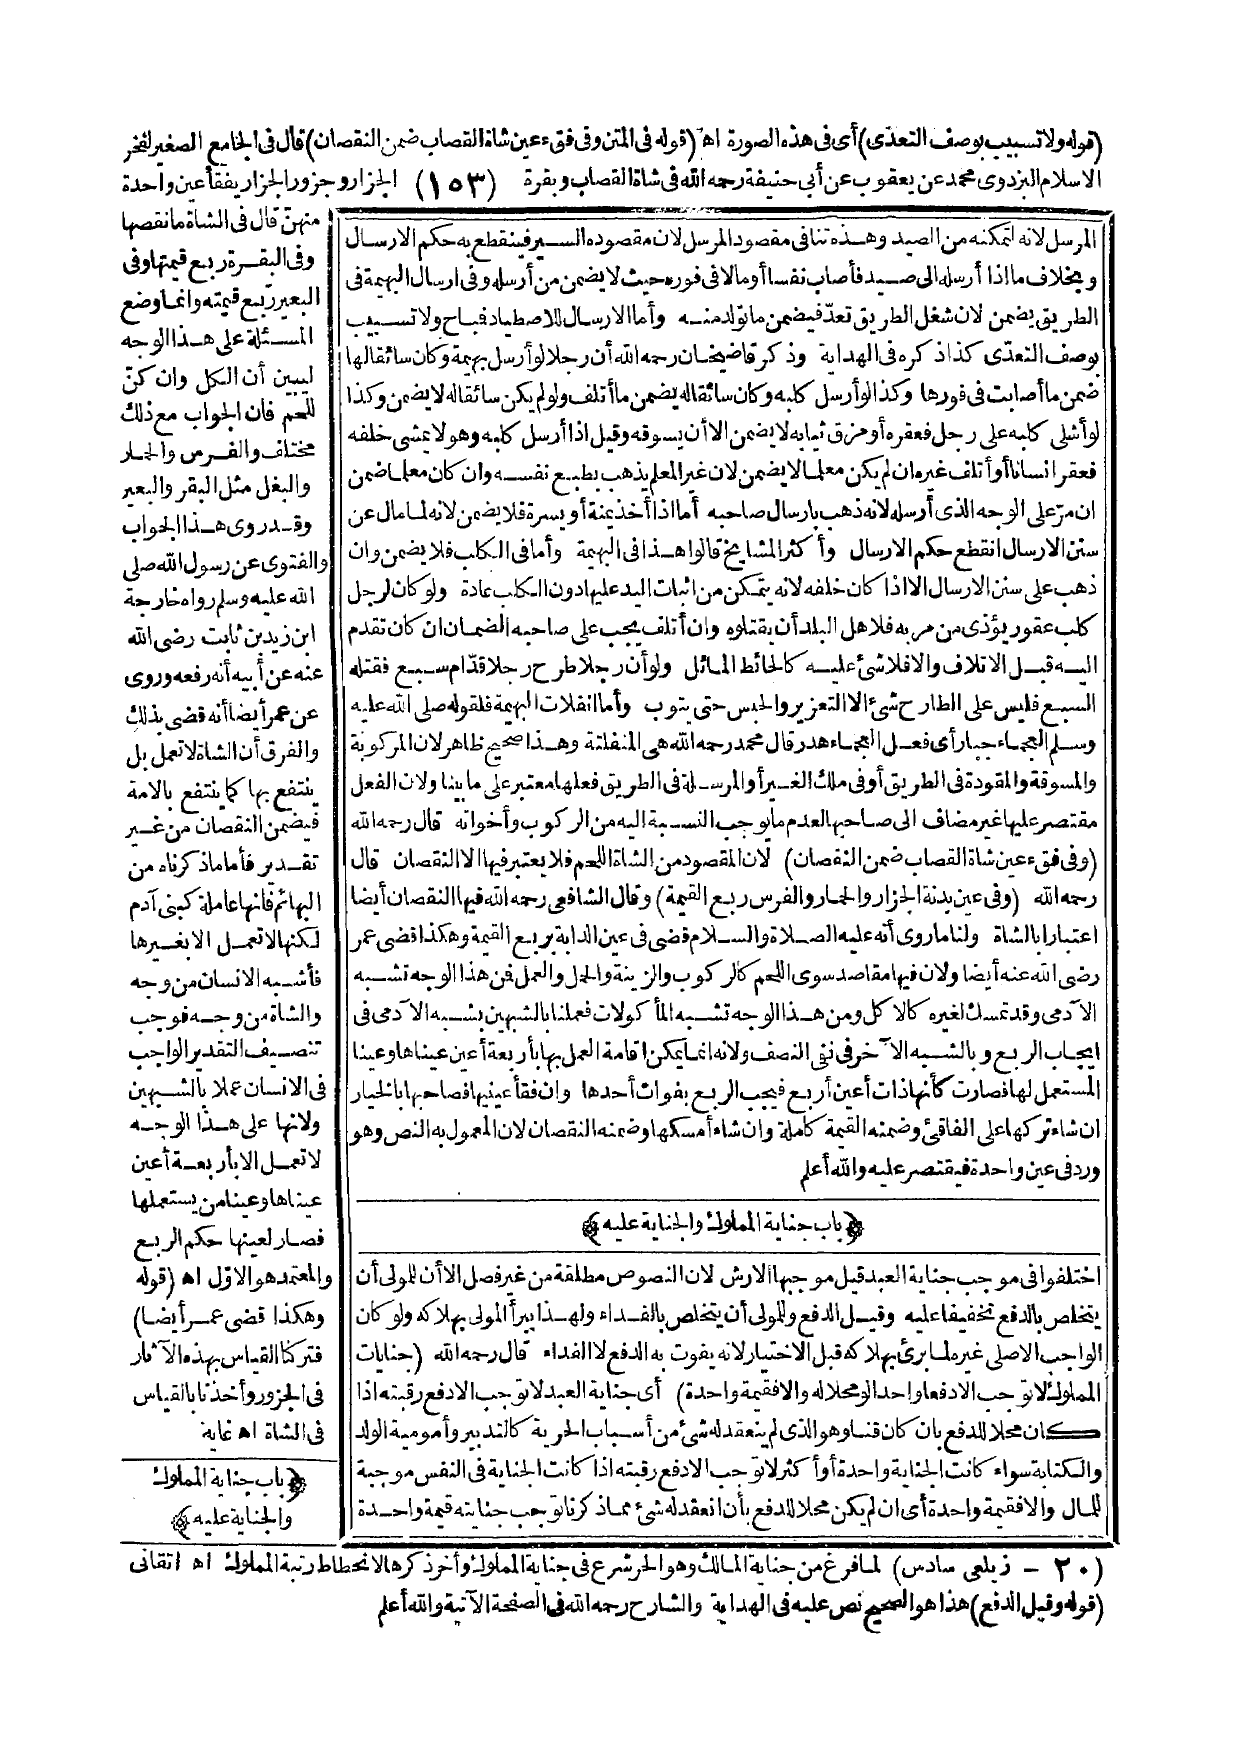 (قوله ولا تسبيب بوصف التعدّى) أى فى هذه الصورة اه (قوله فى المتن وفى فقء عين شاة القصاب ضمن النقصان) قال فى الجامع الصغير لفخر
الاسلام البزدوى محمد عن يعقوب عن أبى حنيفة رحمه الله فى شاة القصاب وبقرة (١٥٣) الجزار وجزور الجزار يفقأ عين واحدة
منهنّ قال فى الشاة ما نقصها
وفى البقرة ربع قيمتها وفى
البعير ربع قيمته وانما وضع
المسئلة على هذا الوجه
ليبين أن الكل وان كنّ
للحم فان الجواب مع ذلك
مختلف والفرس والحمار
والبغل مثل البقر والبعير
وقد روى هذا الجواب
والفتوى عن رسول الله صلى
الله عليه وسلم رواه خارجة
ابن زيد بن ثابت رضى الله
عنه عن أبيه أنه رفعه وروى
عن عمر أيضا أنه قضى بذلك
والفرق أن الشاة لا تعمل بل
ينتفع بها كما ينتفع بالامة
فيضمن النقصان من غير
تقدير فأما ما ذكرناه من
البهائم فانها عاملة كبنى آدم
لكنها لا تعمل الا بغيرها
فأشبه الانسان من وجه
والشاة من وجه فوجب
تنصيف التقدير الواجب
فى الانسان عملا بالشبهين
ولانها على هذا الوجه
لا تعمل الا بأربعة أعين
عيناها وعينا من يستعملها
فصار لعينها حكم الربع
والمعتمد هو الاوّل اه (قوله
وهكذا قضى عمر أيضا)
فتركنا القياس بهذه الآثار
فى الجزور وأخذنا بالقياس
فى الشاة اه غاية
﴿باب جناية المملوك
والجناية عليه﴾
المرسل لانه لتمكنه من الصيد وهذه تنافى مقصود المرسل لان مقصوده السير فينقطع به حكم الارسال
وبخلاف ما اذا أرسله الى صيد فأصاب نفسا أو مالا فى فوره حيث لا يضمن من أرسله وفى ارسال البهيمة فى
الطريق يضمن لان شغل الطريق تعدّ فيضمن ما تولد منه وأما الارسال للاصطياد فمباح ولا تسبيب
بوصف التعدّى كذا ذكره فى الهداية وذكر قاضيخان رحمه الله أن رجلا لو أرسل بهيمة وكان سائقا لها
ضمن ما أصابت فى فورها وكذا لو أرسل كلبه وكان سائقا له يضمن ما أتلف ولو لم يكن سائقا له لا يضمن وكذا
لو أشلى كلبه على رجل فعقره أو مزق ثيابه لا يضمن الا أن يسوقه وقيل اذا أرسل كلبه وهو لا يمشى خلفه
فعقر انسانا أو أتلف غيره ان لم يكن معلما لا يضمن لان غير المعلم يذهب بطبع نفسه وان كان معلما ضمن
ان مرّ على الوجه الذى أرسله لانه ذهب بارسال صاحبه أما اذا أخذ يمنة أو يسرة فلا يضمن لانه لما مال عن
سنن الارسال انقطع حكم الارسال وأكثر المشايخ قالوا هذا فى البهيمة وأما فى الكلب فلا يضمن وان
ذهب على سنن الارسال الا اذا كان خلفه لانه يتمكن من اثبات اليد عليها دون الكلب عادة ولو كان لرجل
كلب عقور يؤذى من مر به فلاهل البلد أن يقتلوه وان أتلف يجب على صاحبه الضمان ان كان تقدم
اليه قبل الاتلاف والا فلا شئ عليه كالحائط المائل ولو أن رجلا طرح رجلا قدّام سبع فقتله
السبع فليس على الطارح شئ الا التعزير والحبس حتى يتوب وأما انفلات البهيمة فلقوله صلى الله عليه
وسلم العجماء جبار أى فعل العجماء هدر قال محمد رحمه الله هى المنفلتة وهذا صحيح ظاهر لان المركوبة
والمسوقة والمقودة فى الطريق أو فى ملك الغير أو المرسلة فى الطريق فعلها معتبر على ما بينا ولان الفعل
مقتصر عليها غير مضاف الى صاحبها لعدم ما يوجب النسبة اليه من الركوب وأخواته قال رحمه الله
(وفى فقء عين شاة القصاب ضمن النقصان) لان المقصود من الشاة اللحم فلا يعتبر فيها الا النقصان قال
رحمه الله (وفى عين بدنة الجزار والحمار والفرس ربع القيمة) وقال الشافعى رحمه الله فيها النقصان أيضا
اعتبارا بالشاة ولنا ما روى أنه عليه الصلاة والسلام قضى فى عين الدابة بربع القيمة وهكذا قضى عمر
رضى الله عنه أيضا ولان فيها مقاصد سوى اللحم كالركوب والزينة والحمل والعمل فمن هذا الوجه تشبه
الآدمى وقد تمسك لغيره كالاكل ومن هذا الوجه تشبه المأكولات فعملنا بالشبهين بشبه الآدمى فى
ايجاب الربع وبالشبه الآخر فى نفى النصف ولانه انما يمكن اقامة العمل بها بأربعة أعين عيناها وعينا
المستعمل لها فصارت كأنها ذات أعين أربع فيجب الربع بفوات أحدها وان فقأ عينيها فصاحبها بالخيار
ان شاء تركها على الفاقئ وضمنه القيمة كاملة وان شاء أمسكها وضمنه النقصان لان المعمول به النص وهو
ورد فى عين واحدة فيقتصر عليه والله أعلم
﴿باب جناية المملوك والجناية عليه﴾
اختلفوا فى موجب جناية العبد قيل موجبها الارش لان النصوص مطلقة من غير فصل الا أن للمولى أن
يتخلص بالدفع تخفيفا عليه وقيل الدفع وللمولى أن يتخلص بالفداء ولهذا يبرأ المولى بهلاكه ولو كان
الواجب الاصلى غيره لما برئ بهلاكه قبل الاختيار لانه يفوت به الدفع لا الفداء قال رحمه الله (جنايات
المملوك لا توجب الا دفعا واحدا لو محلا له والا فقيمة واحدة) أى جناية العبد لا توجب الا دفع رقبته اذا
كان محلا للدفع بان كان قنا وهو الذى لم ينعقد له شئ من أسباب الحرية كالتدبير وأمومية الولد
والكتابة سواء كانت الجناية واحدة أو أكثر لا توجب الا دفع رقبته اذا كانت الجناية فى النفس موجبة
للمال والا فقيمة واحدة أى ان لم يكن محلا للدفع بأن انعقد له شئ مما ذكرنا توجب جنايته قيمة واحدة
(٢٠ - زيلعى سادس) لما فرغ من جناية المالك وهو الحر شرع فى جناية المملوك وأخر ذكرها لانحطاط رتبة المملوك اه اتقانى
(قوله وقيل الدفع) هذا هو الصحيح نص عليه فى الهداية والشارح رحمه الله فى الصفحة الآتية والله أعلم